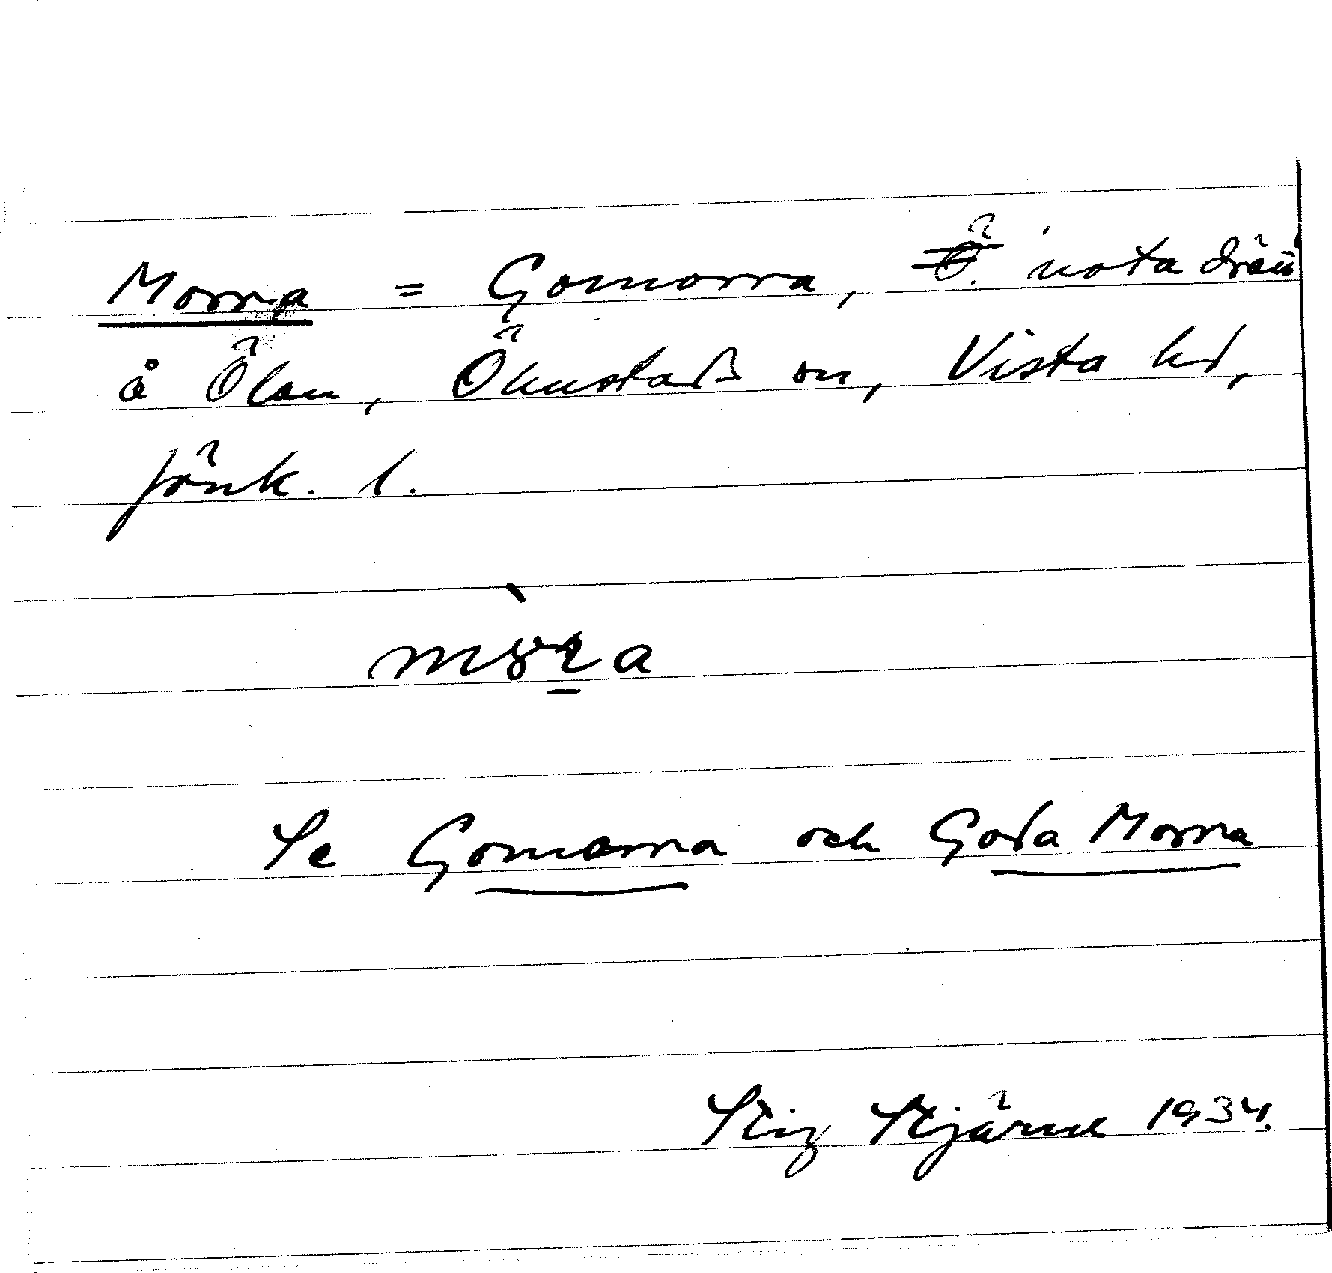 Morra = Gomorra, notadrän
å Ölan, Ölmstads sn, Vista hd,
Jönk. l.
mòra
Se Gomorra och Goda Morra
Stig Stjärne 1934.